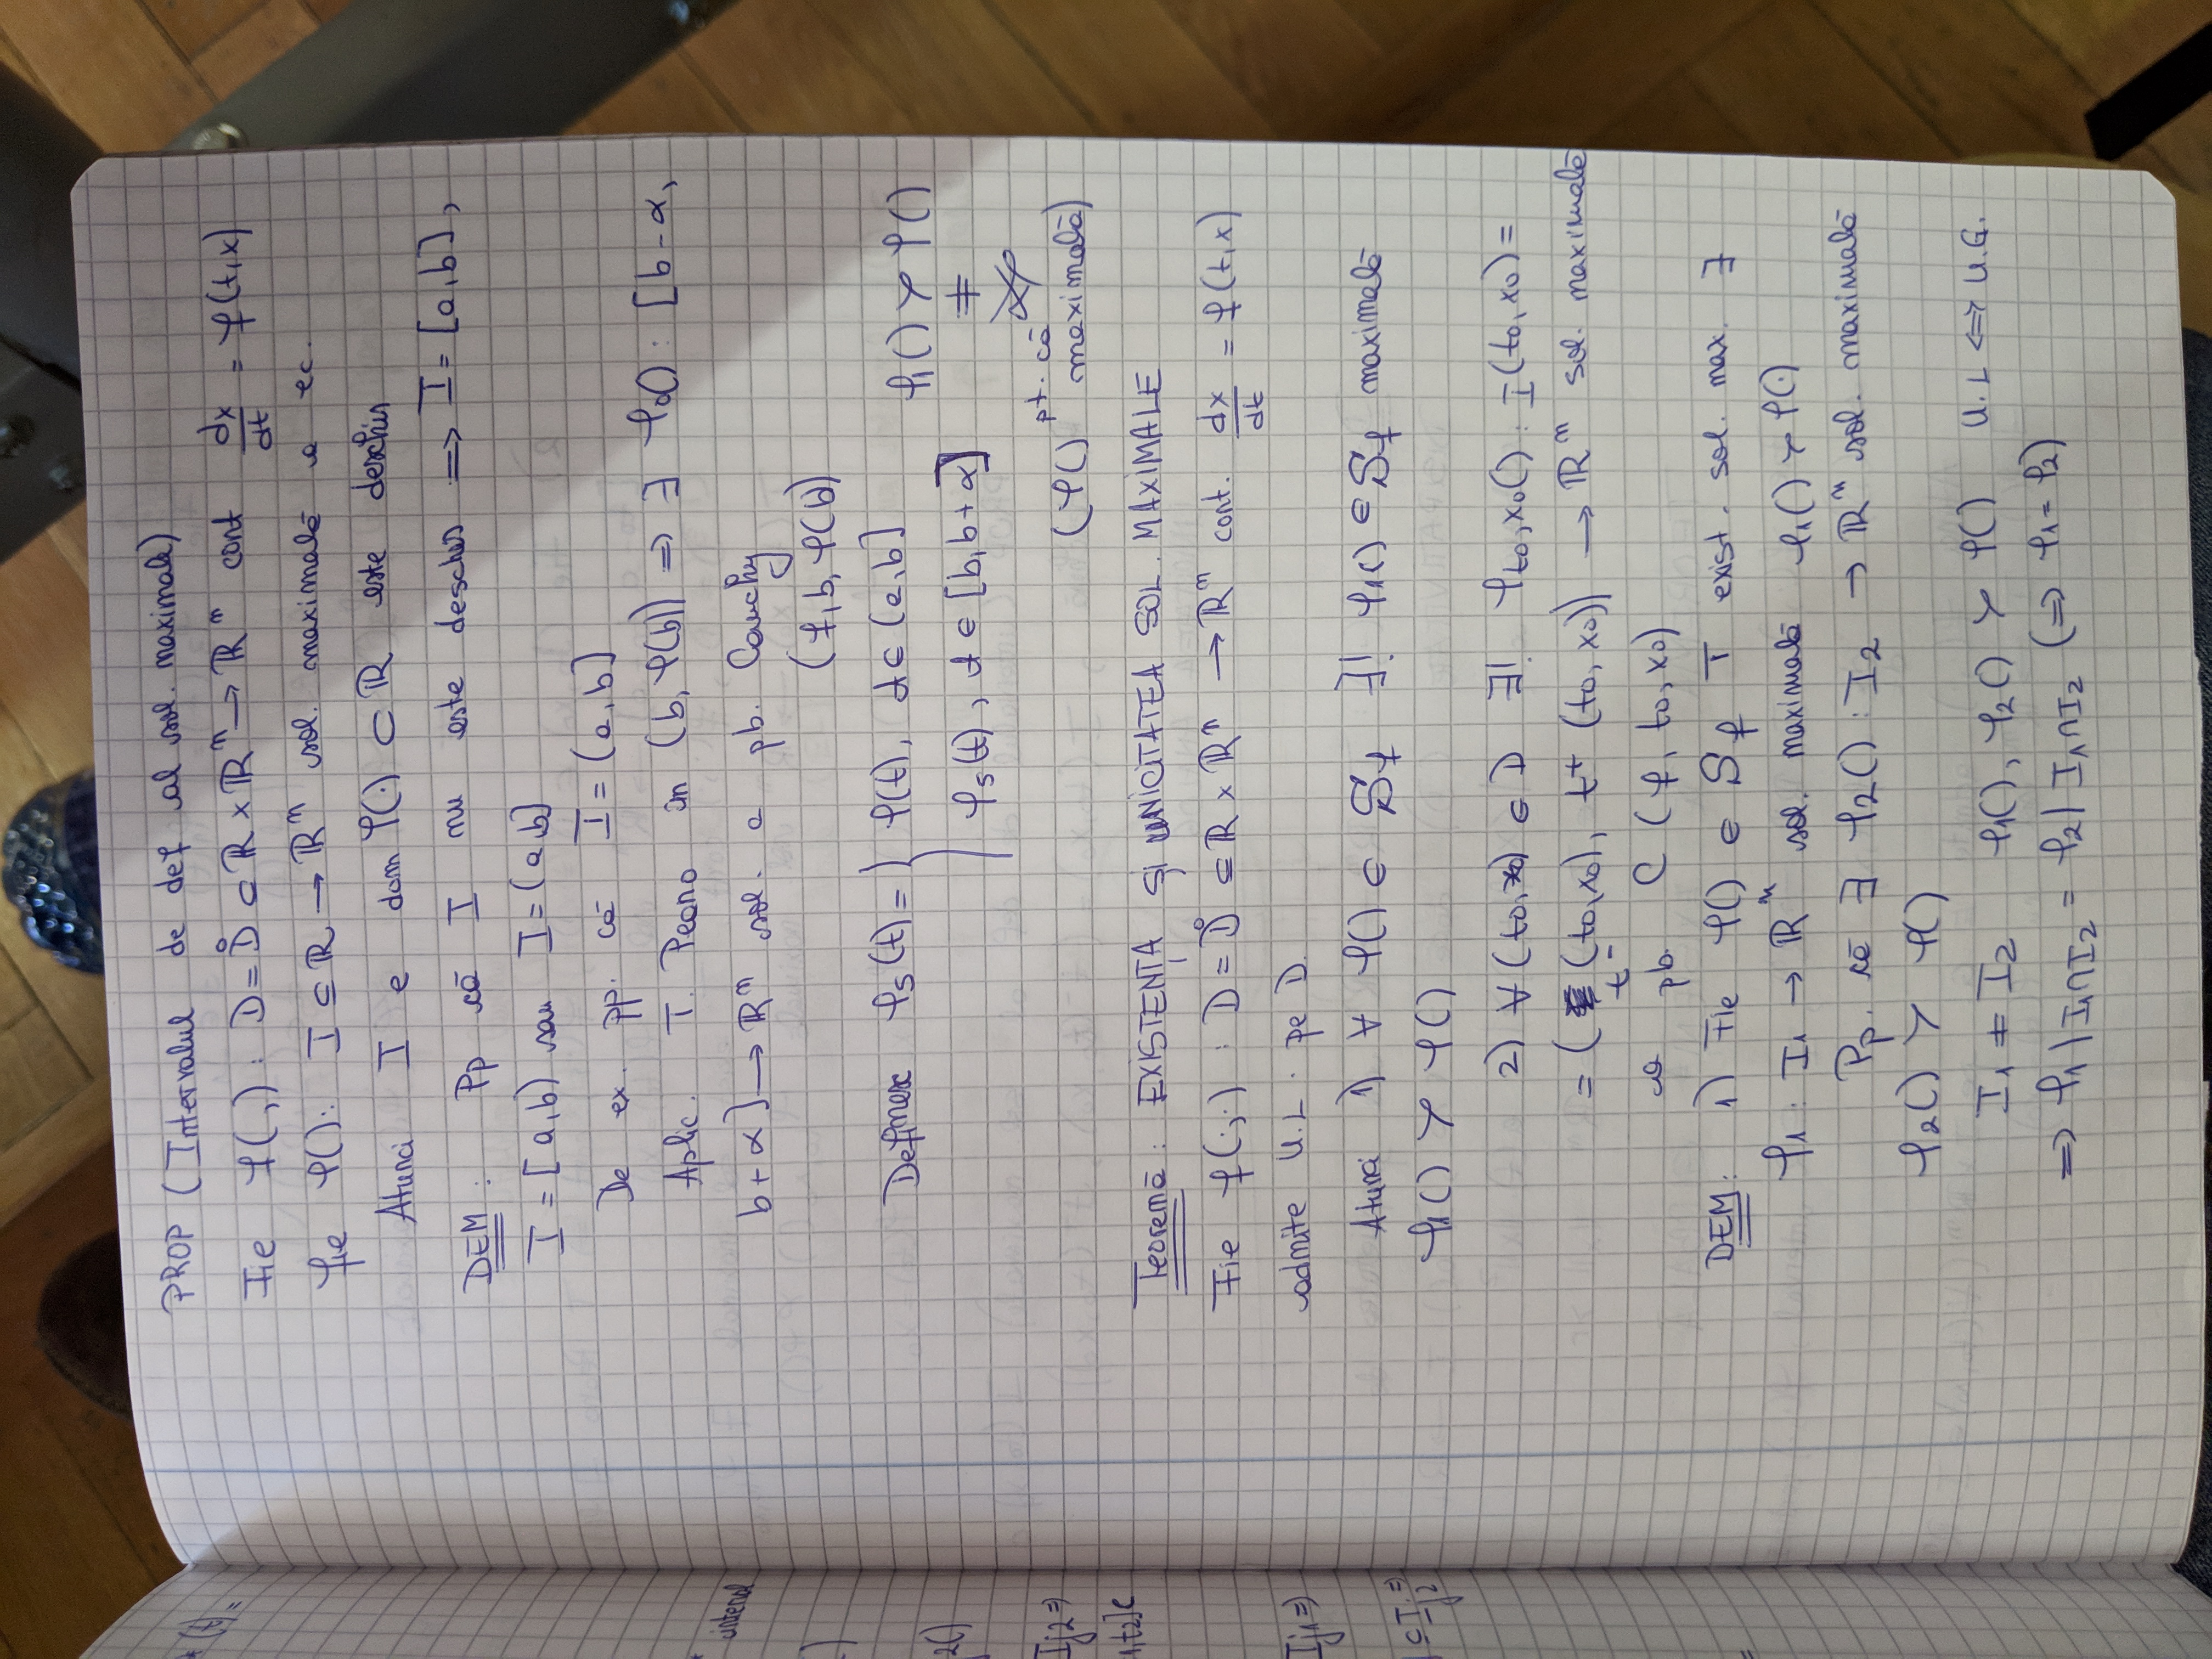 PROP (Intervalul de def al sol. maximale)
Fie f(,) : D = D̊ ⊆ ℝ × ℝⁿ → ℝⁿ cont dx/dt = f(t,x)
fie φ(): I ⊆ ℝ → ℝⁿ sol. maximală a ec.
Atunci I e dom φ(·) ⊂ ℝ este deschis
DEM: Pp că I nu este deschis ⇒ I = [a,b],
I = [a,b) sau I = (a,b]
De ex. pp. că I = (a,b]
Aplic. T. Peano în (b, φ(b)) ⇒ ∃ φ₀() : [b-α,
b+α] → ℝⁿ sol. a pb. Cauchy
(f, b, φ(b)
Definesc φ₅(t) = { φ(t), t ∈ (a,b]
φ₁() ≻ φ()
φ₅(t), t ∈ [b, b+α]
≠
pt. că
(φ() maximală)
Teoremă: EXISTENȚA ȘI UNICITATEA SOL. MAXIMALE
Fie f(·;·) : D = D̊ ⊆ ℝ × ℝⁿ → ℝⁿ cont. dx/dt = f(t,x)
admite U.L. pe D.
Atunci 1) ∀ φ() ∈ S_f ∃! φ₁() ∈ S_f maximală
φ₁() ≻ φ()
2) ∀ (t0,x0) ∈ D ∃! φt0,x0() : I(t0,x0) =
= (t⁻(t0,x0), t⁺(t0,x0)) → ℝⁿ sol. maximală
a pb. C (f, t0, x0)
DEM: 1) Fie φ() ∈ S_f T exist. sol. max. ∃
φ₁ : I₁ → ℝⁿ sol. maximală φ₁() ≻ φ(·)
Pp. că ∃ φ₂() : I₂ → ℝⁿ sol. maximală
φ₂() ≻ φ()
I₁ ≠ I₂ φ₁(), φ₂() ≻ φ() U.L ⇔ U.G.
⇒ φ₁ | I₁∩I₂ = φ₂ | I₁∩I₂ (⇒ φ₁ = φ₂)
* (t) =
interval
2()
Ij2 ⇒
1,t2] ⊂
Ij1 ⇒
⊆ Ij2 ⇒